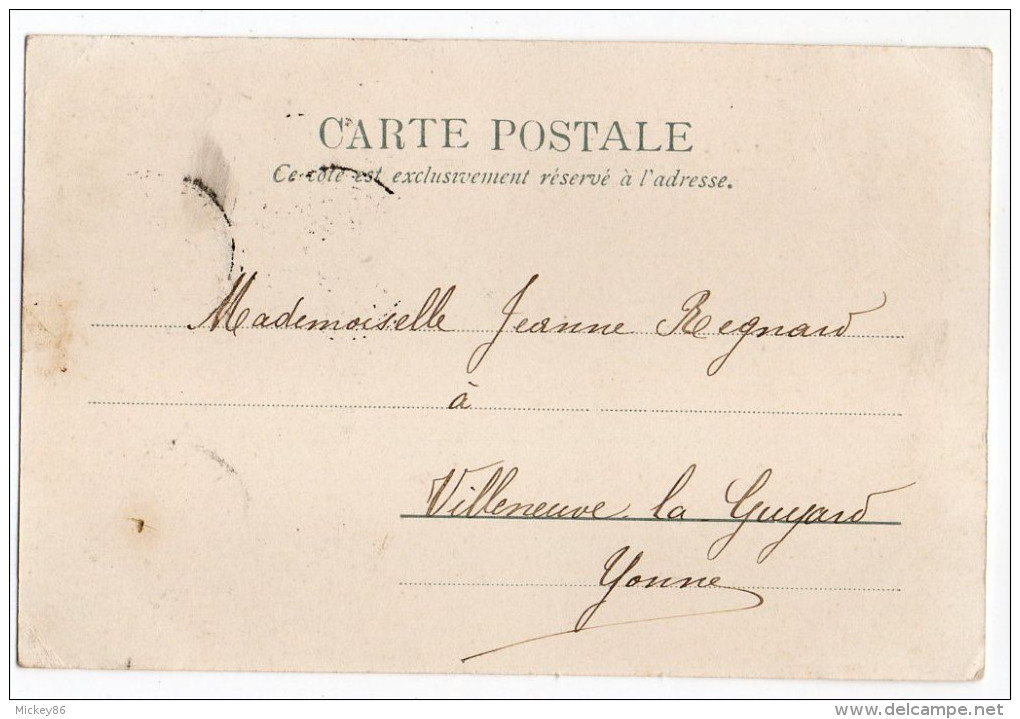 CARTE POSTALE
Ce côté est exclusivement réservé à l'adresse.
Mademoiselle Jeanne Regnard
à
Villeneuve la Guyard
Yonne
Mickey86
www.delcampe.net